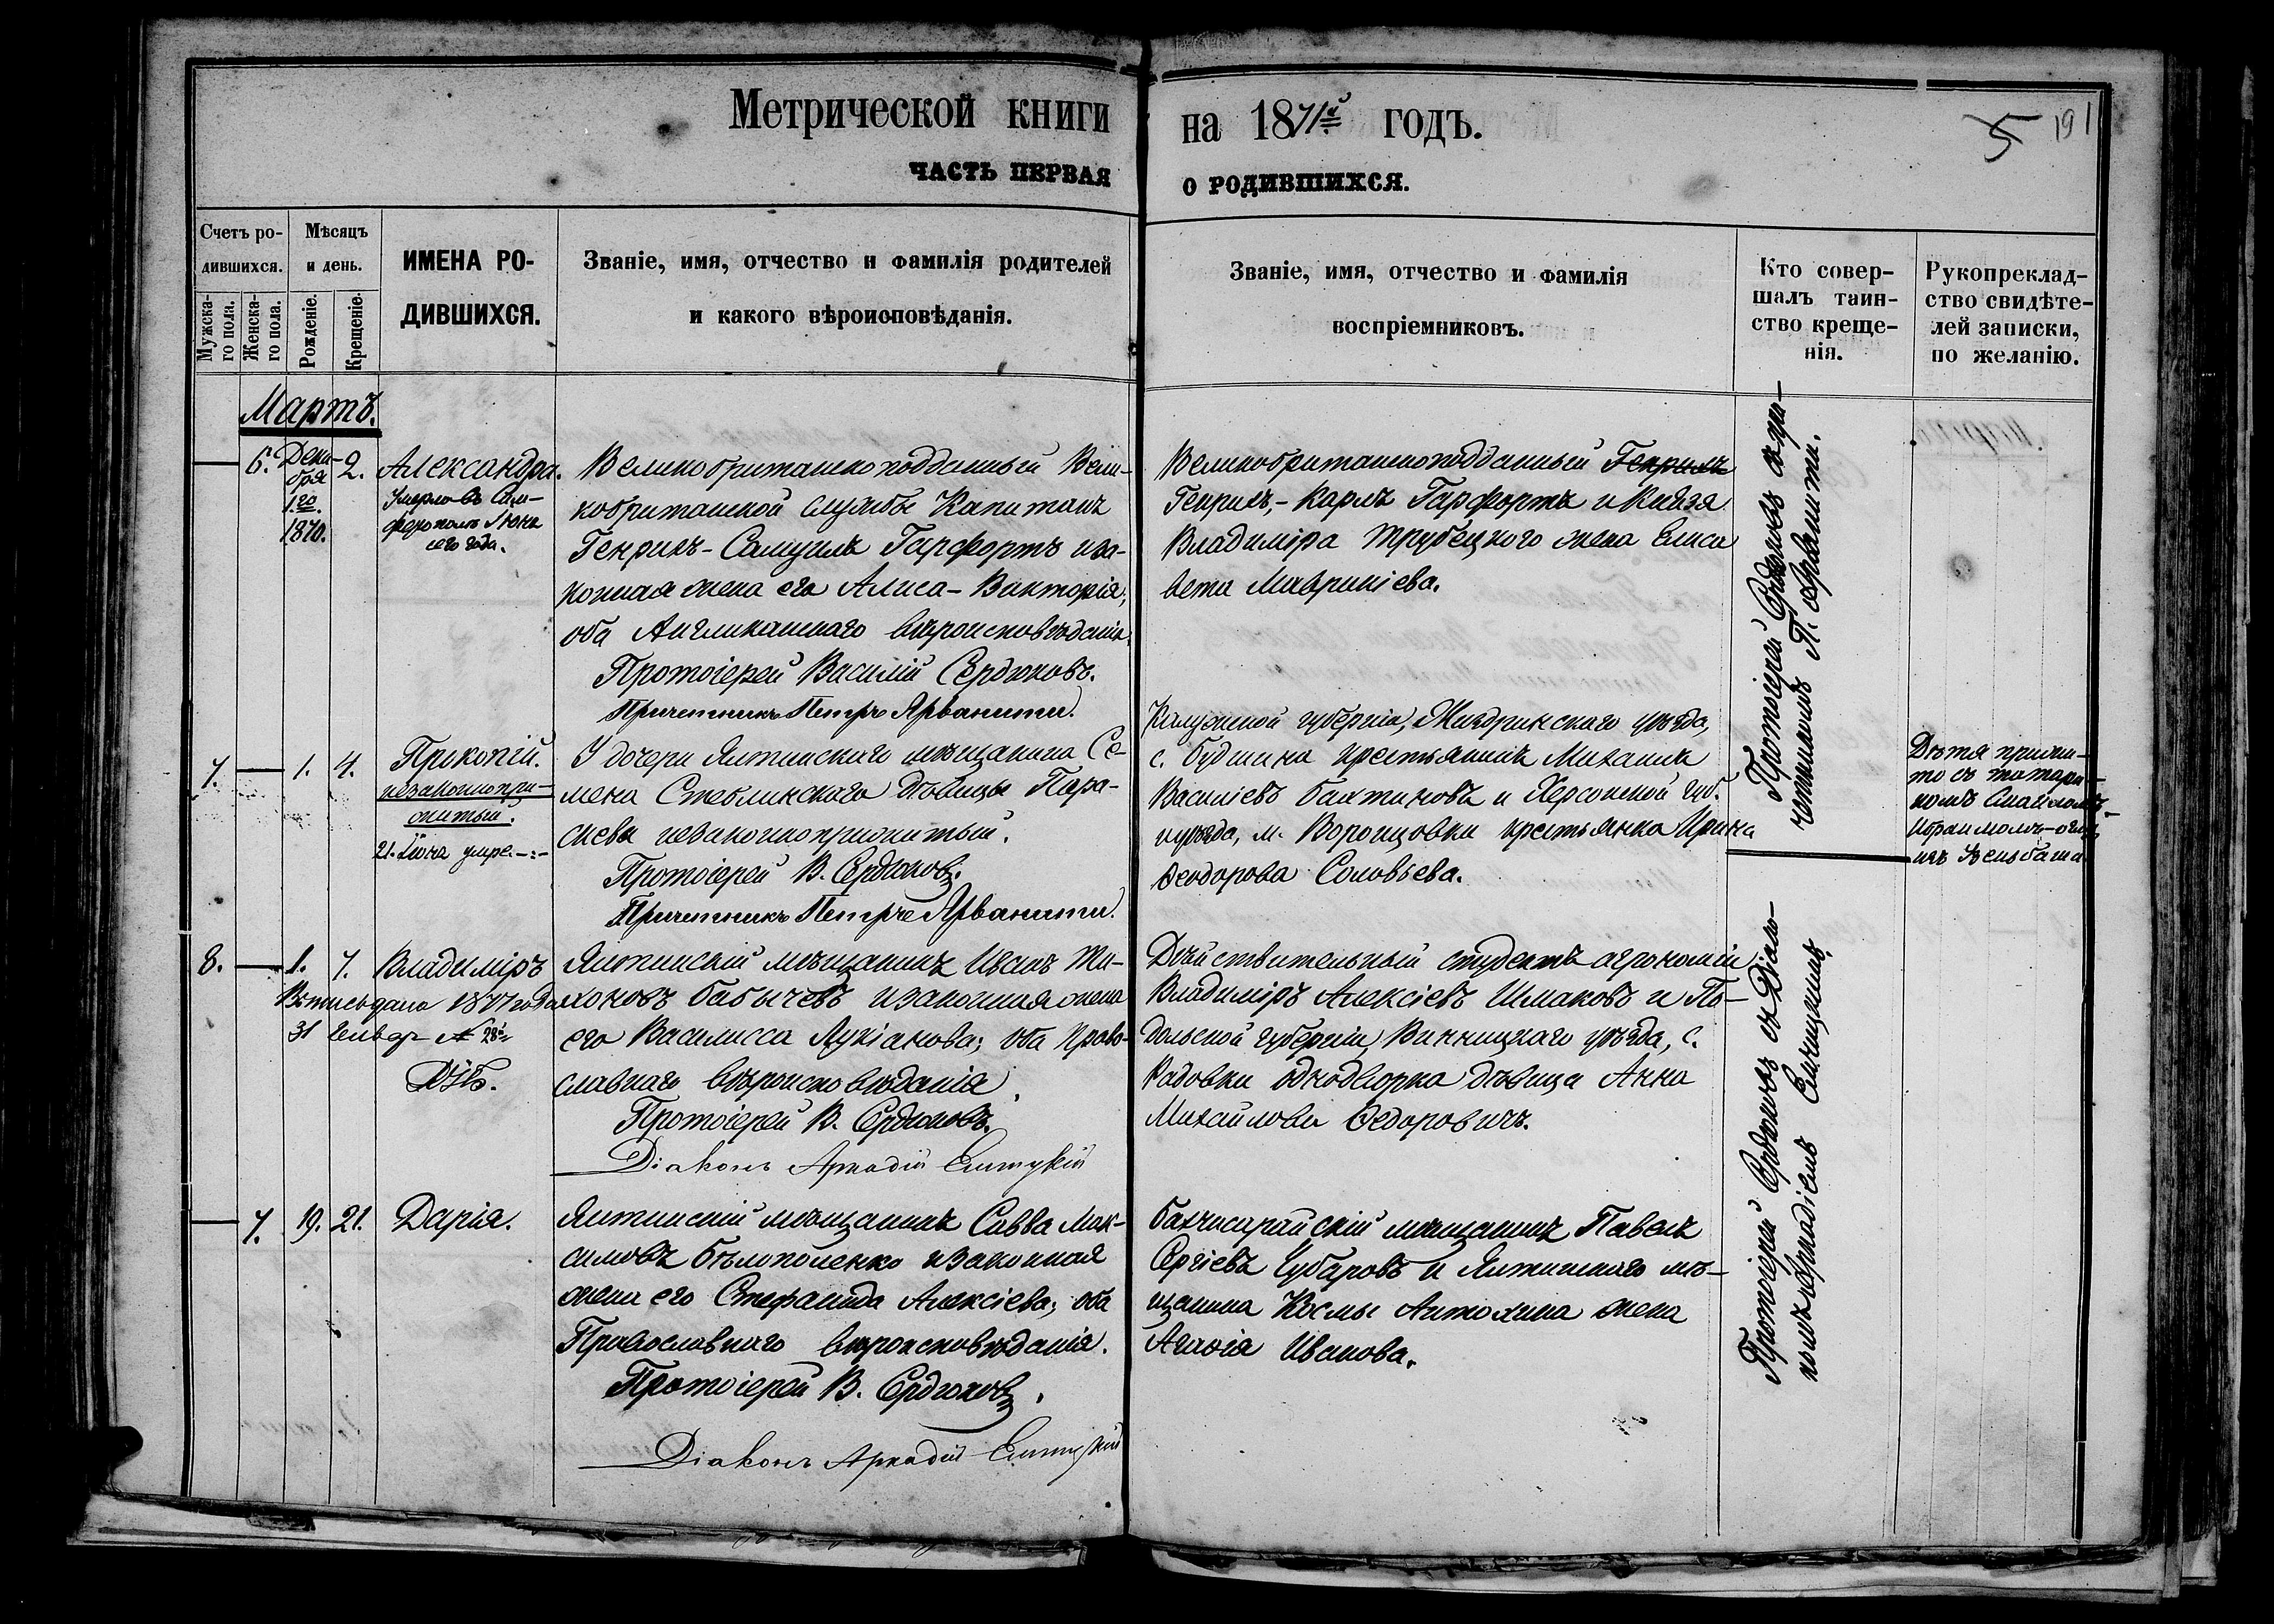 Метрической книги на 1871й годъ.
5 191
ЧАСТЬ ПЕРВАЯ О РОДИВШИХСЯ.
Счетъ ро-
дившихся.
Мужска-
го пола.
Женска-
го пола.
Мѣсяцъ
и день.
Рожденіе.
Крещеніе.
ИМЕНА РО-
ДИВШИХСЯ.
Званіе, имя, отчество и фамилія родителей
и какого вѣроисповѣданія.
Званіе, имя, отчество и фамилія
воспріемниковъ.
Кто совер-
шалъ таин-
ство креще-
нія.
Рукопреклад-
ство свидѣте-
лей записки,
по желанію.
Мартъ.
6. Дека-
бря
1870.
2.
Александра.
Умерла въ Сим-
ферополѣ Июня
сего года.
Великобританскоподданный Вели-
кобританской службы Капитанъ
Генрихъ-Самуилъ Гарфортъ и за-
конная жена его Алиса-Викторія;
оба Англиканскаго вѣроисповѣданія.
Протоіерей Василій Сердюковъ.
Причетникъ Петръ Ярванити.
Великобританскоподданный Генрихъ
Генрихъ-Карлъ Гарфортъ и Князя
Владиміра Трубецкого жена Елиса
вета Маврикіева.
Протоіерей Сердюковъ съ при-
четникомъ П. Ярванити.
7. 1. 4.
Прокопій.
незаконнопри-
житый.
21. Іюня умре.
У дочери Ялтинскаго мѣщанина Се-
мена Стеблинскаго дѣвицы Пара-
скевы незаконноприжитый.
Протоіерей В. Сердюковъ.
Причетникъ Петръ Ярванити.
Калужской губерніи, Жиздринскаго уѣзда,
с. Будшина крестьянинъ Михаилъ
Василіевъ Балтиновъ и Херсонской губ.
и уѣзда, м. Воронцовки крестьянка Ирина
Ѳеодорова Соловьева.
Дѣтя прижи-
то съ татари-
номъ
8. 1. 7.
Владиміръ
Выпись дана 1877 года
31 Январ № 28й
Ялтинскій мѣщанинъ Иванъ Ти-
хоновъ Бабычевъ и законная жена
его Василисса Лукіанова; оба право-
славнаго вѣроисповѣданія.
Протоіерей В. Сердюковъ.
Діаконъ Аркадій
Дѣйствительный студентъ агрономіи
Владиміръ Алексіевъ Шмаковъ и По-
дольской губерніи, Винницкаго уѣзда, с.
Радовки однодворка дѣвица Анна
Михайлова Ѳедоровичъ.
Протоіерей Сердюковъ съ Діако-
номъ Аркадіемъ
7. 19. 21.
Дарія.
Ялтинскій мѣщанинъ Савва Мак-
симовъ Бѣлополенко и законная
жена его Стефанида Алексіева; оба
Православнаго вѣроисповѣданія.
Протоіерей В. Сердюковъ.
Діаконъ Аркадій
Бахчисарайскій мѣщанинъ Павелъ
Сергіевъ Чубаровъ и Ялтинскаго мѣ-
щанина Космы Антохина жена
Агаѳія Иванова.